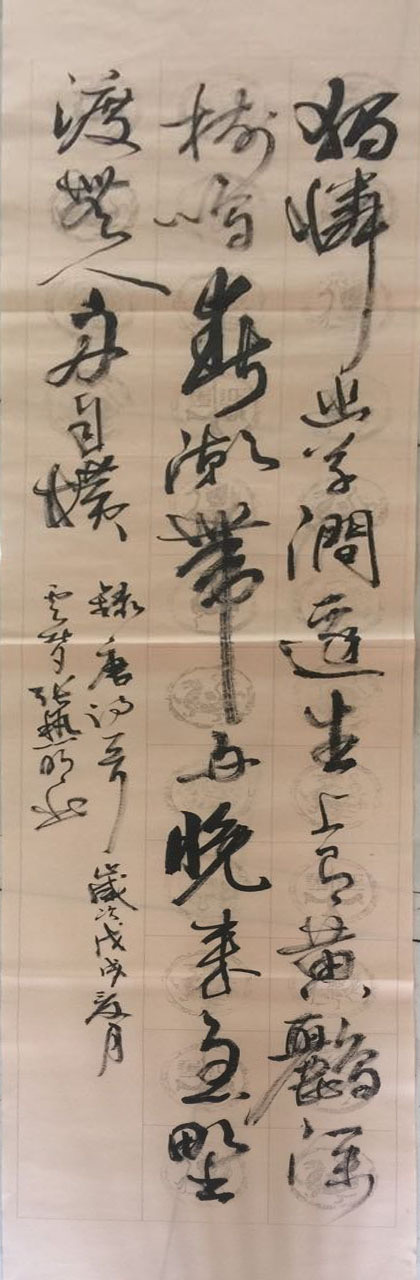 獨憐幽草澗邊生上有黃鸝深
樹鳴春潮帶雨晚來急野
渡無人舟自橫
錄唐詩一首 歲次戊戌月
張